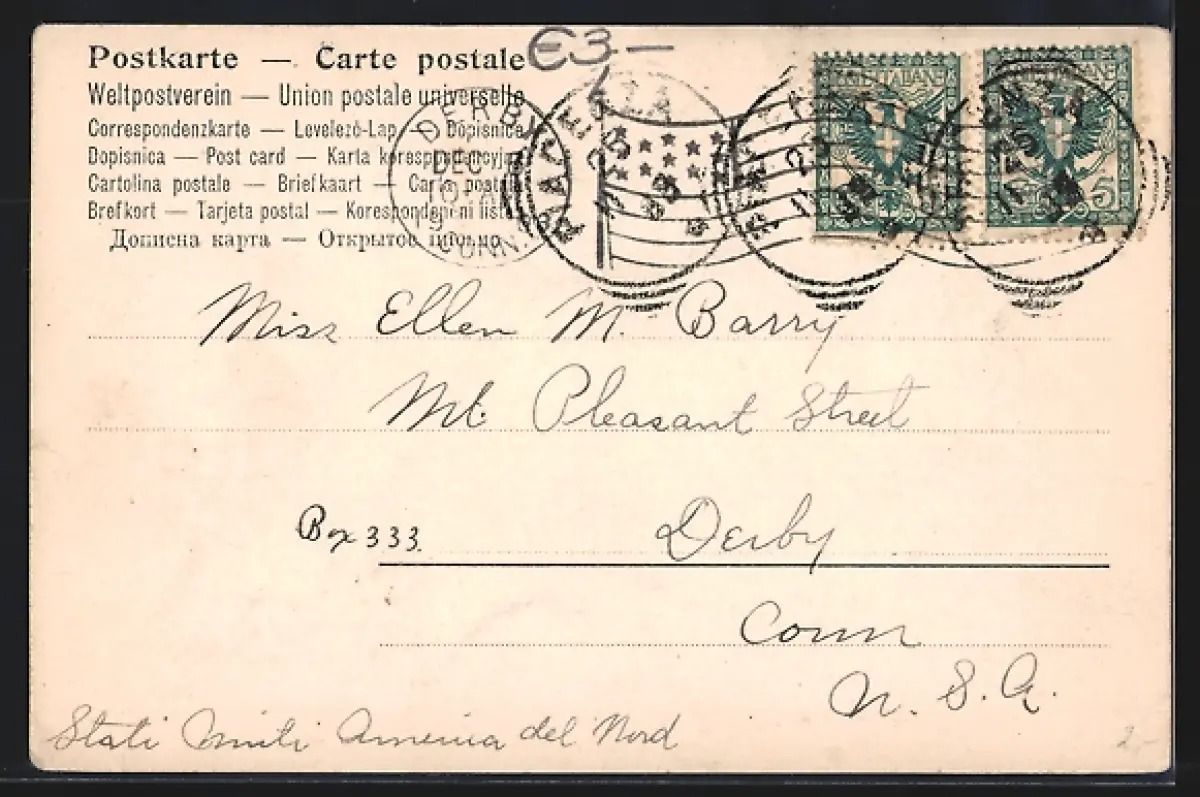 Postkarte — Carte postale
Weltpostverein — Union postale universelle
Correspondenzkarte — Levelező-Lap — Dopisnice
Dopisnica — Post card — Karta korespondencyjna
Cartolina postale — Briefkaart — Carta postala
Brefkort — Tarjeta postal — Korespondencni listek
Дописна карта — Открытое письмо
€3—
DERBY
DEC
CONN.
PIACENZA
5
Miss Ellen M. Barry
Mt. Pleasant Street
Box 333.
Derby
Conn
U. S. A.
Stati Uniti America del Nord
2-